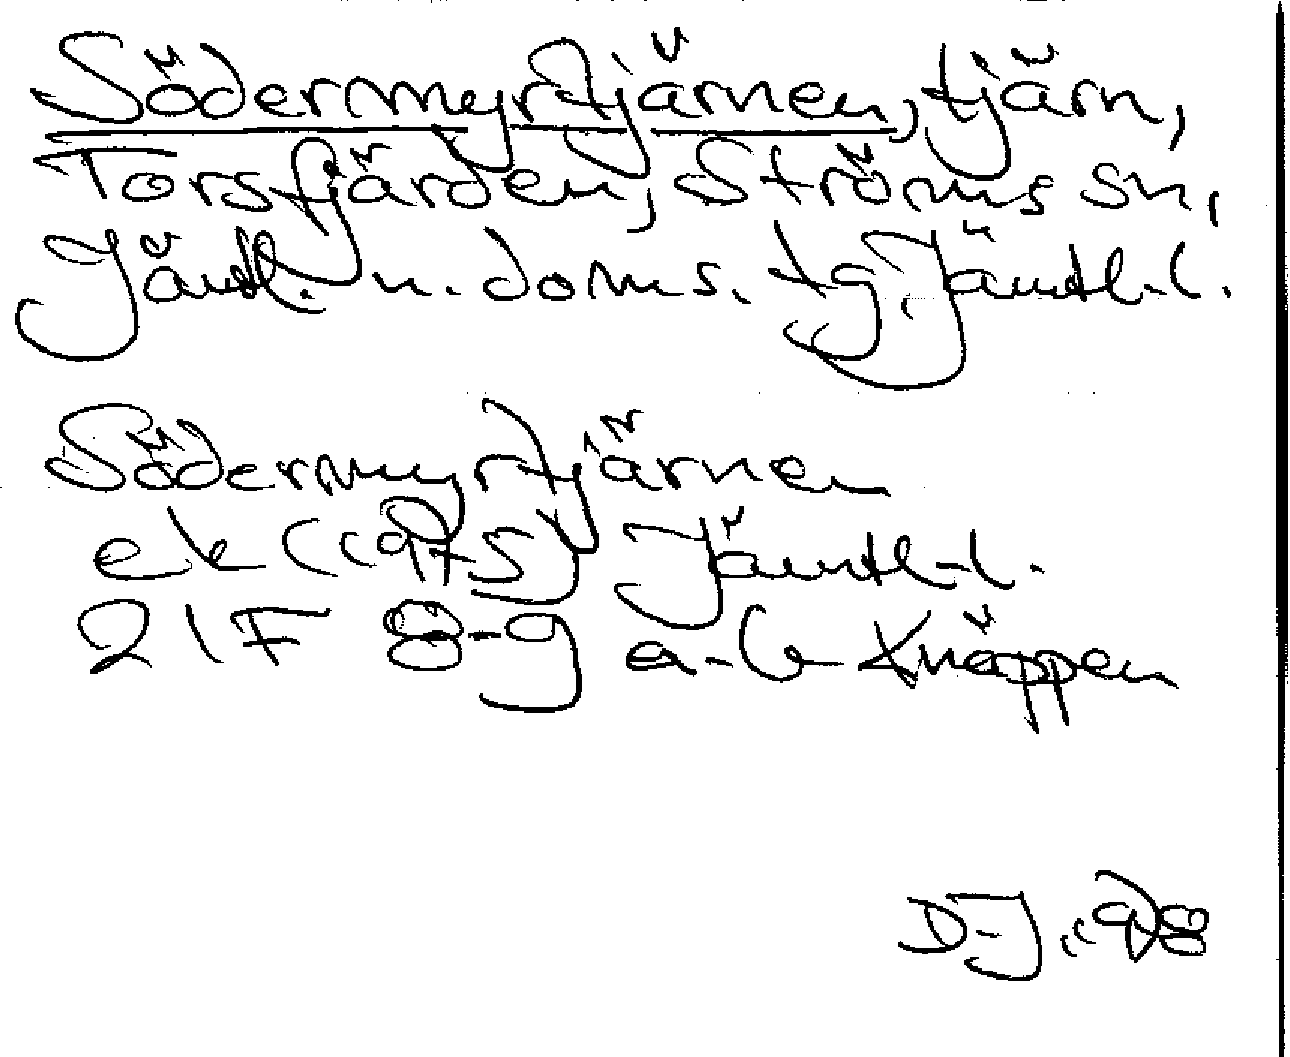 Södermyrtjärnen, tjärn,
Torsfjärden, Ströms sn,
Jämtl. n. doms. tg. Jämtl. l.
Södermyrtjärnen
ek (1975) Jämtl. l.
21F 8-9 a-b Knäppen
D-J "98